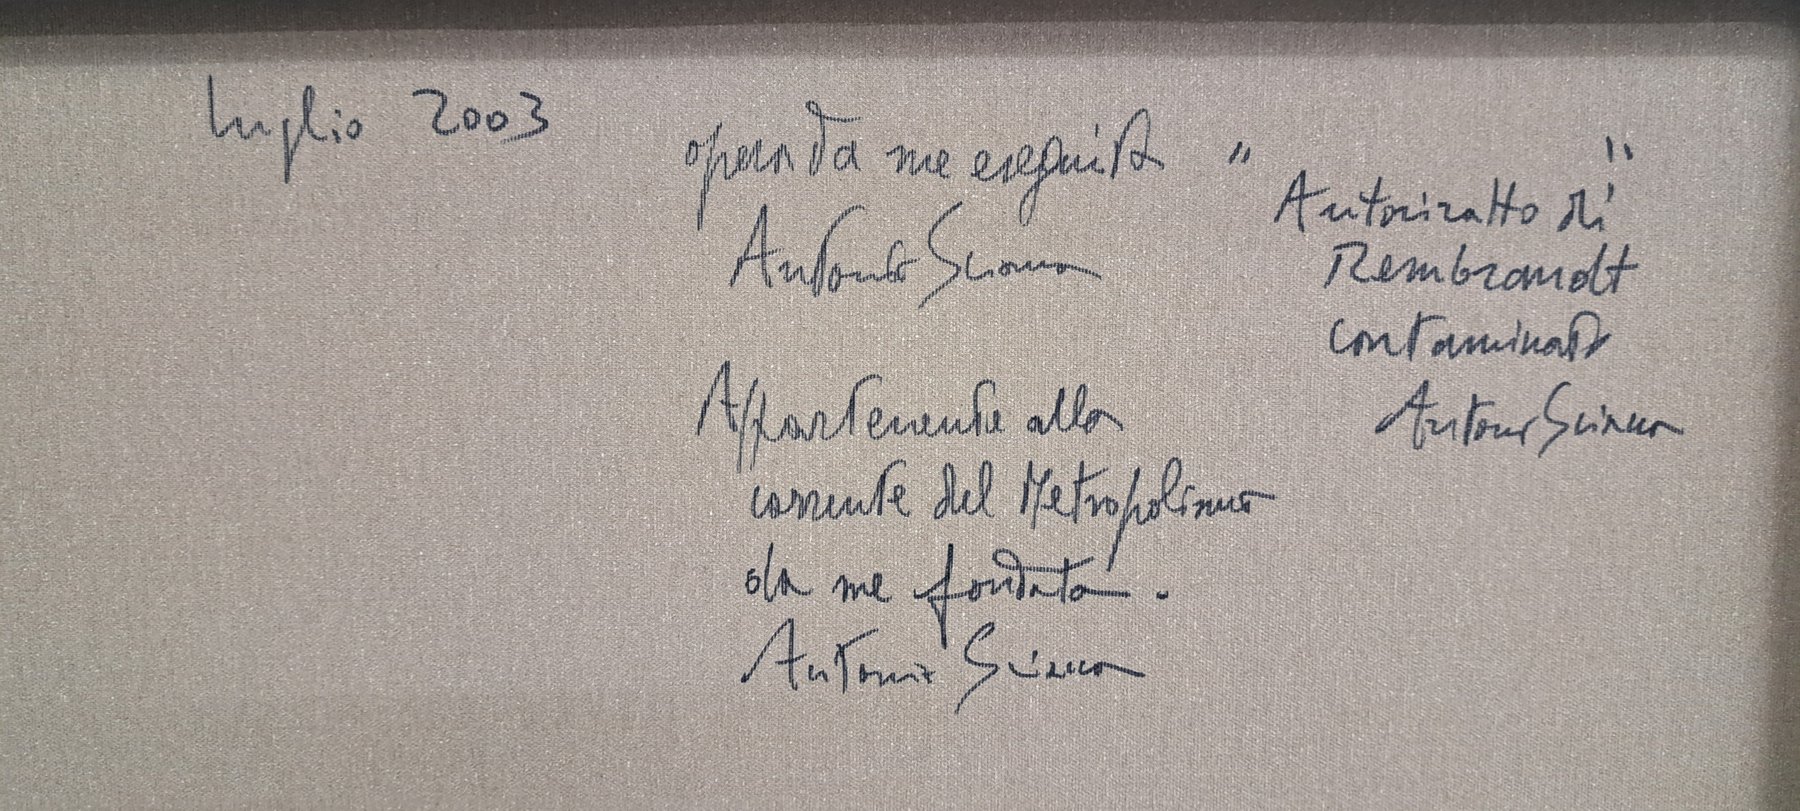 luglio 2003
opera da me eseguita
Antonio Sciacca
" "
Autoritratto di
Rembrandt
contaminato
Antonio Sciacca
Appartenente alla
corrente del Metropolismo
da me fondata.
Antonio Sciacca